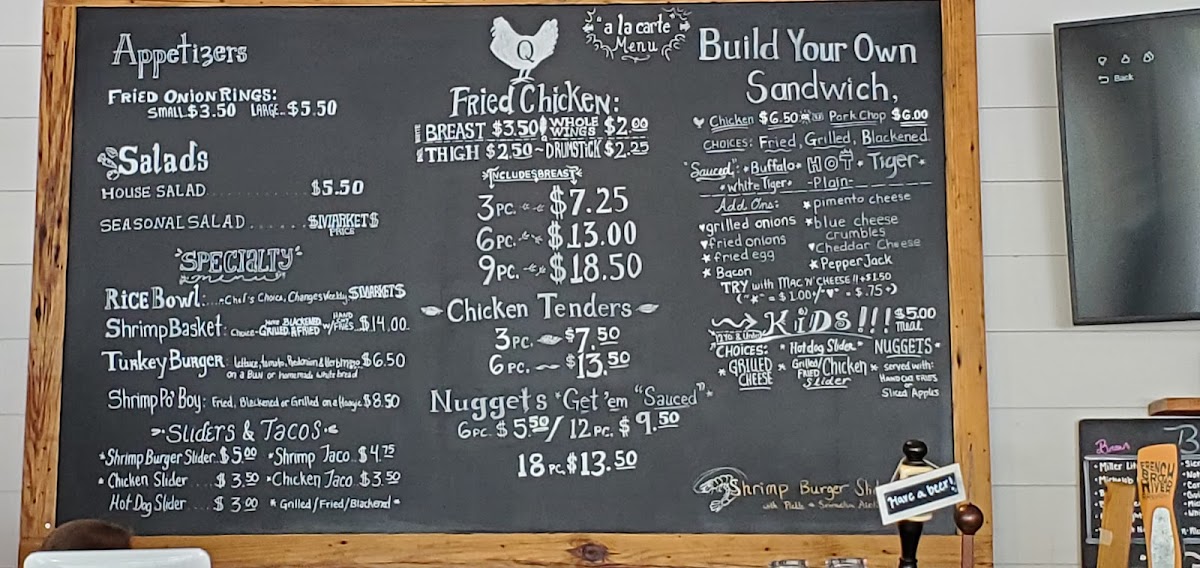 Appetizers
FRIED ONION RINGS:
SMALL $3.50 LARGE $5.50
Salads
HOUSE SALAD.......... $5.50
SEASONAL SALAD ...... $MARKET$
PRICE
"SPECIALTY"
menu
RICE BOWL:...Chef's Choice, Changes Weekly $MARKET$
Shrimp Basket: Choice-GRILLED, BLACKENED, FRIED w/ HAND CUT FRIES $14.00
Turkey Burger: Lettuce, tomato, Red onion & Herb mayo $6.50
on a Bun or homemade white bread
Shrimp Po' Boy: Fried, Blackened or Grilled on a Hoagie $8.50
SLIDERS & TACOS
*Shrimp Burger Slider $5.00 •Shrimp Taco $4.75
• Chicken Slider ... $3.50 •Chicken Taco $3.50
Hot Dog Slider .... $3.00 *Grilled/Fried/Blackend*
Q
Fried Chicken:
BREAST $3.50 WHOLE WINGS $2.00
THIGH $2.50 ~ DRUMSTICK $2.25
INCLUDES BREAST
3 PC. $7.25
6 PC. $13.00
9 PC. $18.50
Chicken Tenders
3 PC. $7.50
6 PC. $13.50
Nuggets *Get 'em "Sauced"*
6 PC. $5.50/ 12 PC. $9.50
18 PC. $13.50
"a la carte"
Menu
Build Your Own
Sandwich,
Chicken $6.50 Pork Chop $6.00
CHOICES: Fried, Grilled, Blackened
"Sauced": •Buffalo• HOT • Tiger•
•white Tiger• -Plain-
Add Ons: *pimento cheese
♥grilled onions *blue cheese crumbles
♥fried onions ♥Cheddar Cheese
*fried egg *PepperJack
* Bacon
TRY with MAC 'N' CHEESE !! +$1.50
("*" = $1.00+/"♥" = $.75+)
KiDS!!! $5.00 meal
CHOICES: *Hotdog Slider* NUGGETS*
* GRILLED CHEESE * Grilled/FRIED Chicken Slider * served with:
HAND CUT FRIES or
Sliced Apples
Shrimp Burger
Have a beer!
Back
• Miller